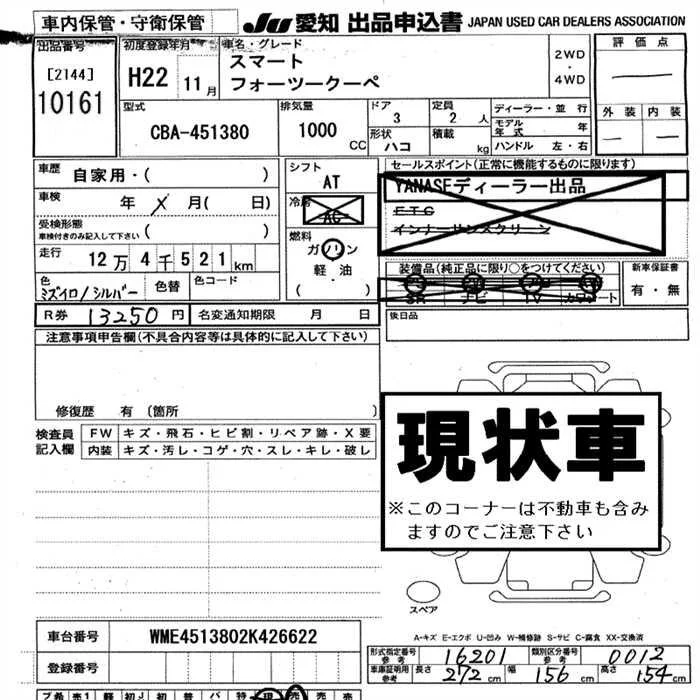 車内保管・守衛保管
JU 愛知 出品申込書 JAPAN USED CAR DEALERS ASSOCIATION
出品番号
[2144]
10161
初度登録年月
H22 11月
車名・グレード
スマート
フォーツークーペ
2WD
・
4WD
評価点
外装 内装
型式
CBA-451380
排気量
1000
CC
ドア
3
定員
2 人
形状
ハコ
積載
kg
ディーラー・並行
モデル年式 年
ハンドル 左・右
車歴
自家用・( )
車検
年 月( 日)
受検形態
車検付きのみ記入して下さい ( )
走行
12万4千521km
色
ミズイロ/シルバー
色替
色コード
シフト
AT
冷房
AC
燃料
ガソリン
軽・油
( )
セールスポイント(正常に機能するものに限ります)
YANASEディーラー出品
ETC
インナーサンスクリーン
装備品(純正品に限り○をつけてください)
SR ナビ TV カワシート
新車保証書
有・無
R券 13250円
名変通知期限 月 日
後日品
注意事項申告欄(不具合内容等は具体的に記入して下さい)
修復歴 有 (箇所 )
検査員
記入欄
FW キズ・飛石・ヒビ割・リペア跡・X要
内装 キズ・汚レ・コゲ・穴・スレ・キレ・破レ
現状車
※このコーナーは不動車も含み
ますのでご注意下さい
スペア
A-キズ E-エクボ U-凹み W-補修跡 S-サビ C-腐食 XX-交換済
車台番号
WME4513802K426622
登録番号
形式指定番号
参考
16201
類別区分番号
参考
0012
車庫証明用
参考
長さ 272cm 幅 156cm 高さ 154cm